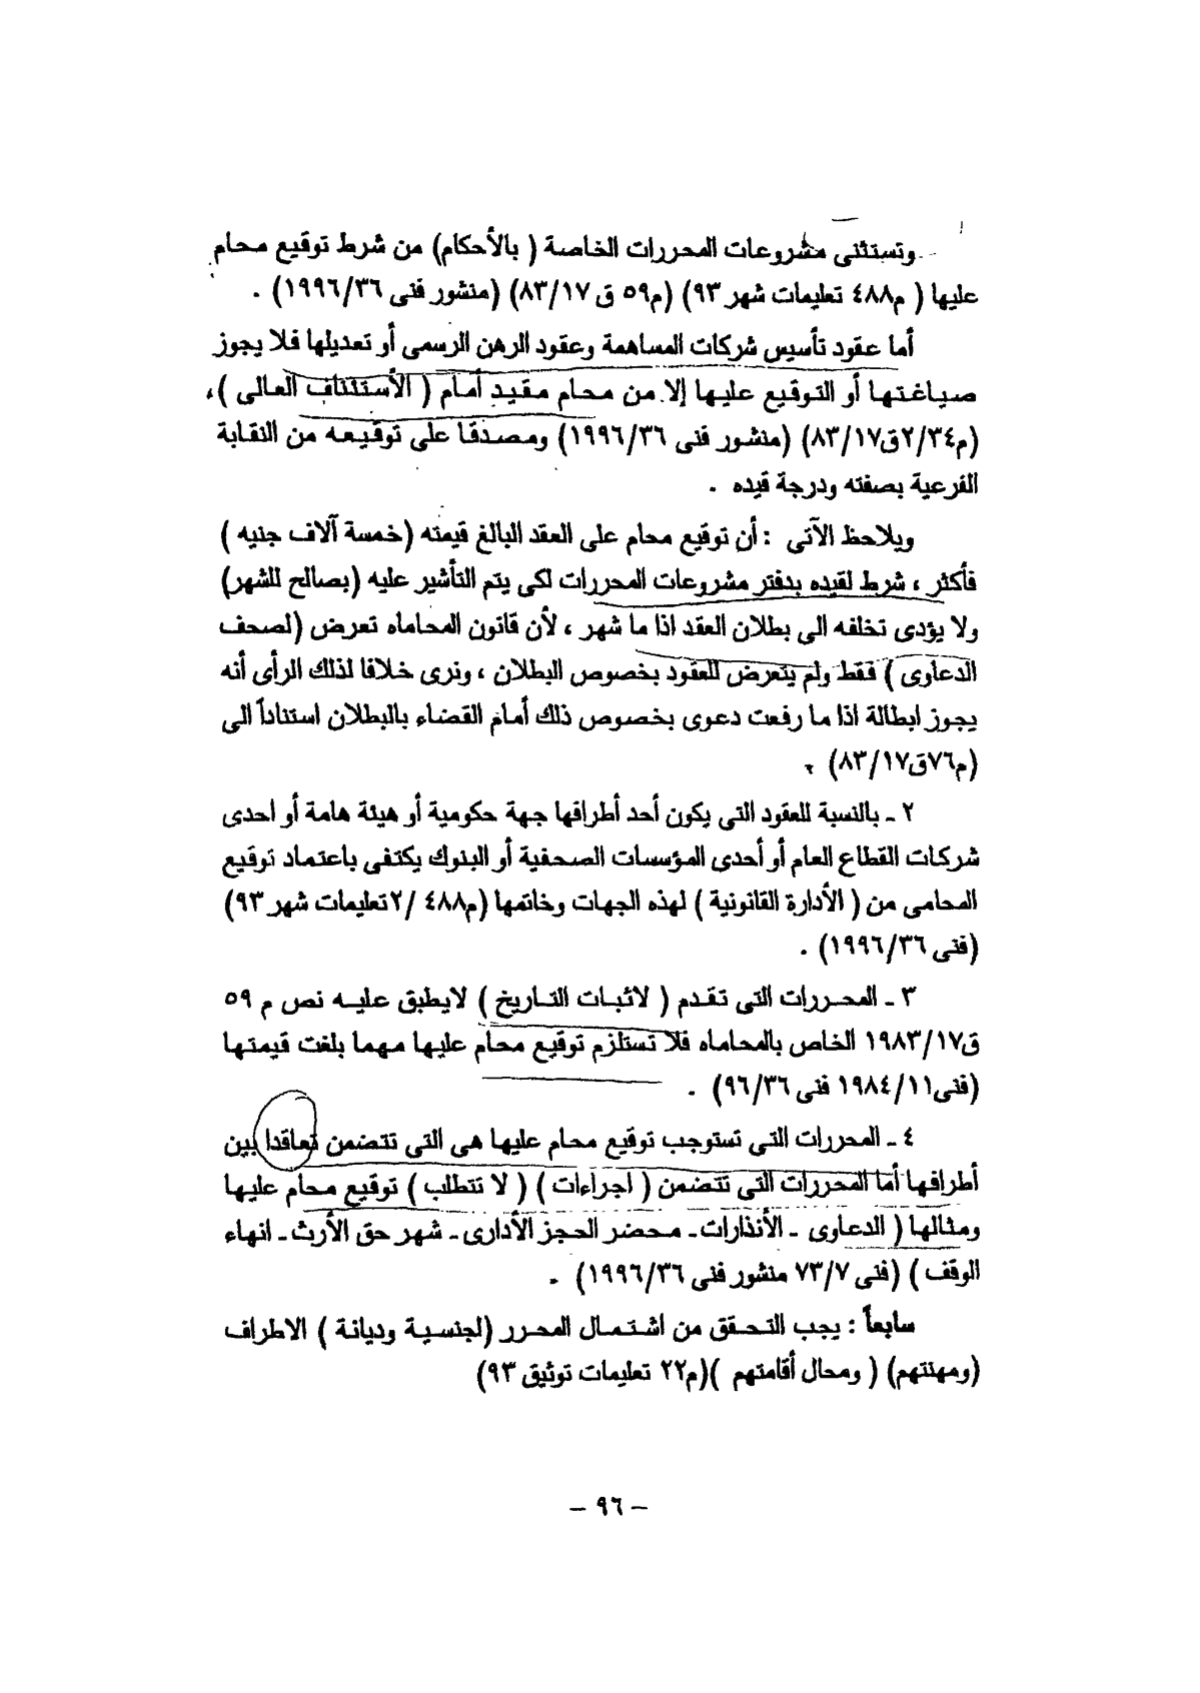 وتستثنى مشروعات المحررات الخاصة ( بالأحكام) من شرط توقيع محام
عليها ( م٤٨٨ تعليمات شهر ٩٣) (م٥٩ ق ٨٣/١٧) (منشور فنى ١٩٩٦/٣٦) .
أما عقود تأسيس شركات المساهمة وعقود الرهن الرسمى أو تعديلها فلا يجوز
صياغتها أو التوقيع عليها إلا من محام مقيد أمام ( الأستئناف العالى ) ،
(م٢/٣٤ق٨٣/١٧) (منشور فنى ١٩٩٦/٣٦) ومصدقا على توقيعه من النقابة
الفرعية بصفته ودرجة قيده .
ويلاحظ الآتى : أن توقيع محام على العقد البالغ قيمته (خمسة آلاف جنيه )
فأكثر ، شرط لقيده بدفتر مشروعات المحررات لكى يتم التأشير عليه (بصالح للشهر)
ولا يؤدى تخلفه الى بطلان العقد اذا ما شهر ، لأن قانون المحاماه تعرض (لصحف
الدعاوى ) فقط ولم يتعرض للعقود بخصوص البطلان ، ونرى خلافا لذلك الرأى أنه
يجوز ابطالة اذا ما رفعت دعوى بخصوص ذلك أمام القضاء بالبطلان استناداً الى
(م٧٦ق٨٣/١٧) .
٢ ـ بالنسبة للعقود التى يكون أحد أطرافها جهة حكومية أو هيئة هامة أو احدى
شركات القطاع العام أو أحدى المؤسسات الصحفية أو البنوك يكتفى باعتماد توقيع
المحامى من ( الأدارة القانونية ) لهذه الجهات وخاتمها (م٤٨٨ /٢ تعليمات شهر ٩٣)
(فنى ١٩٩٦/٣٦) .
٣ ـ المحررات التى تقدم ( لاثبات التاريخ ) لايطبق عليه نص م ٥٩
ق١٩٨٣/١٧ الخاص بالمحاماه فلا تستلزم توقيع محام عليها مهما بلغت قيمتها
(فنى١٩٨٤/١١ فنى ٩٦/٣٦) .
٤ ـ المحررات التى تستوجب توقيع محام عليها هى التى تتضمن تعاقدا بين
أطرافها أما المحررات التى تتضمن ( اجراءات ) ( لا تتطلب ) توقيع محام عليها
ومثالها ( الدعاوى ـ الأنذارات ـ محضر الحجز الأدارى ـ شهر حق الأرث ـ انهاء
الوقف ) (فنى ٧٣/٧ منشور فنى ١٩٩٦/٣٦) .
سابعاً : يجب التحقق من اشتمال المحرر (لجنسية وديانة ) الاطراف
(ومهنتهم) ( ومحال أقامتهم )(م٢٢ تعليمات توثيق ٩٣)
– ٩٦ –